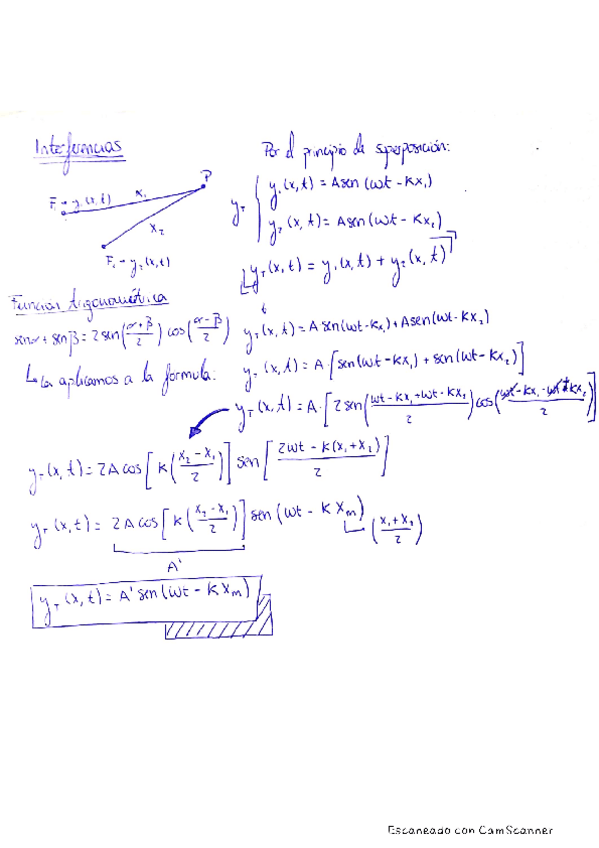 Interferencias
Por el principio de superposición:
P
F₁ → y₁(x,t)
x₁
x₂
F₂ → y₂(x,t)
yT { y₁(x,t) = A sen (ωt - Kx₁)
y₂(x,t) = A sen (ωt - Kx₂)
yT(x,t) = y₁(x,t) + y₂(x,t)
Función trigonométrica
senα + senβ = 2 sen((α+β)/2) cos((α-β)/2)
La aplicamos a la formula:
yT(x,t) = A sen(ωt - Kx₁) + A sen(ωt - Kx₂)
yT(x,t) = A [sen(ωt - Kx₁) + sen(ωt - Kx₂)]
yT(x,t) = A·[2 sen((ωt - Kx₁ + ωt - Kx₂)/2) cos((ωt - Kx₁ - ωt + Kx₂)/2)]
yT(x,t) = 2A cos[K((x₂-x₁)/2)] sen[(2ωt - K(x₁+x₂))/2]
yT(x,t) = 2A cos[K((x₂-x₁)/2)] sen(ωt - K xm)
((x₁+x₂)/2)
A'
yT(x,t) = A' sen(ωt - K xm)
Escaneado con CamScanner